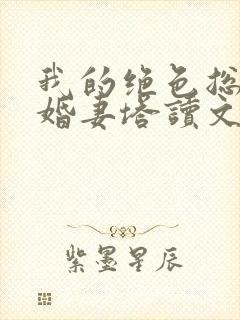 我的绝色总
婚妻塔讀文
紫墨星辰